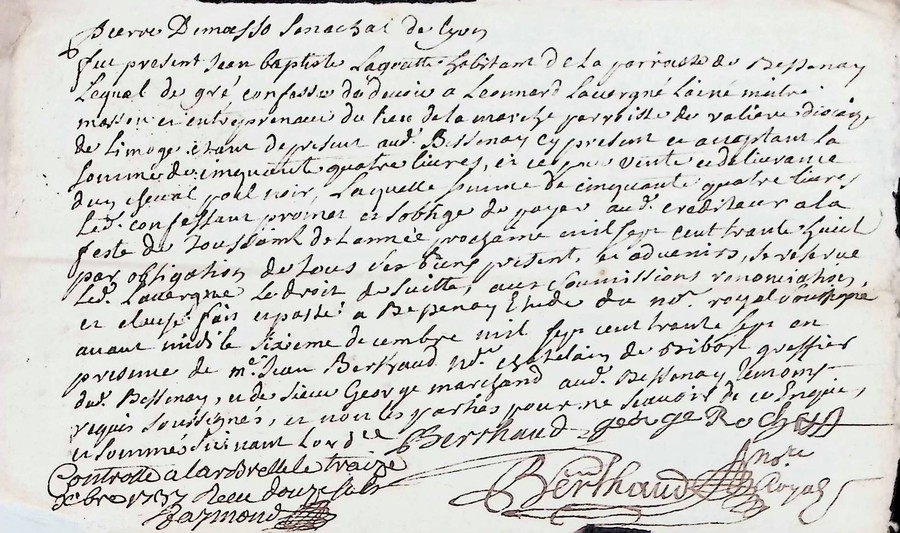 Pierre Dimasso Senachal de Lyon
fut present Jean baptiste Lagoutte habitant de la parroisse de Bessenay
Lequel de gré confesse du devoir a Leonnard Lavergne Lainé maitre
masson et entreprenaeur du lieu de la marche parroisse de valiere dioceze
de Limoge étant de present aud. Bessenay cy present et acceptant la
somme de cinquante quatre livres, et ce pour vente et delivrance
dun cheval poil noir, Laquelle somme de cinquante quatre livres
Led. confessant promet et soblige de payer aud. creditaur a la
feste de Toussaint de Lannée prochaine mil sept cent trante huict
par obligation de tous ses biens present, et advenirs, se reserve
Led. Lavergne Le droit de suitte, aux soumissions renonciations,
et clauses fait et passé a Bessenay Etude du no.re royal soussigné
avant midi le sixieme decembre mil sept cent trante sept en
presence de m.e Jean Berthaud n.re chatelain de Ribost greffier
dud. Bessenay, et de sieur George marchand aud. Bessenay temoins
requis soussignés, et non les parties pour ne scavoir de ce Enquis,
et sommés suivant Lord.ce Berthaud george Roche
Controllé a Larbresle le traize
xbre 1737 Receu douze sols
Raymond
Berthaud n.re Royal